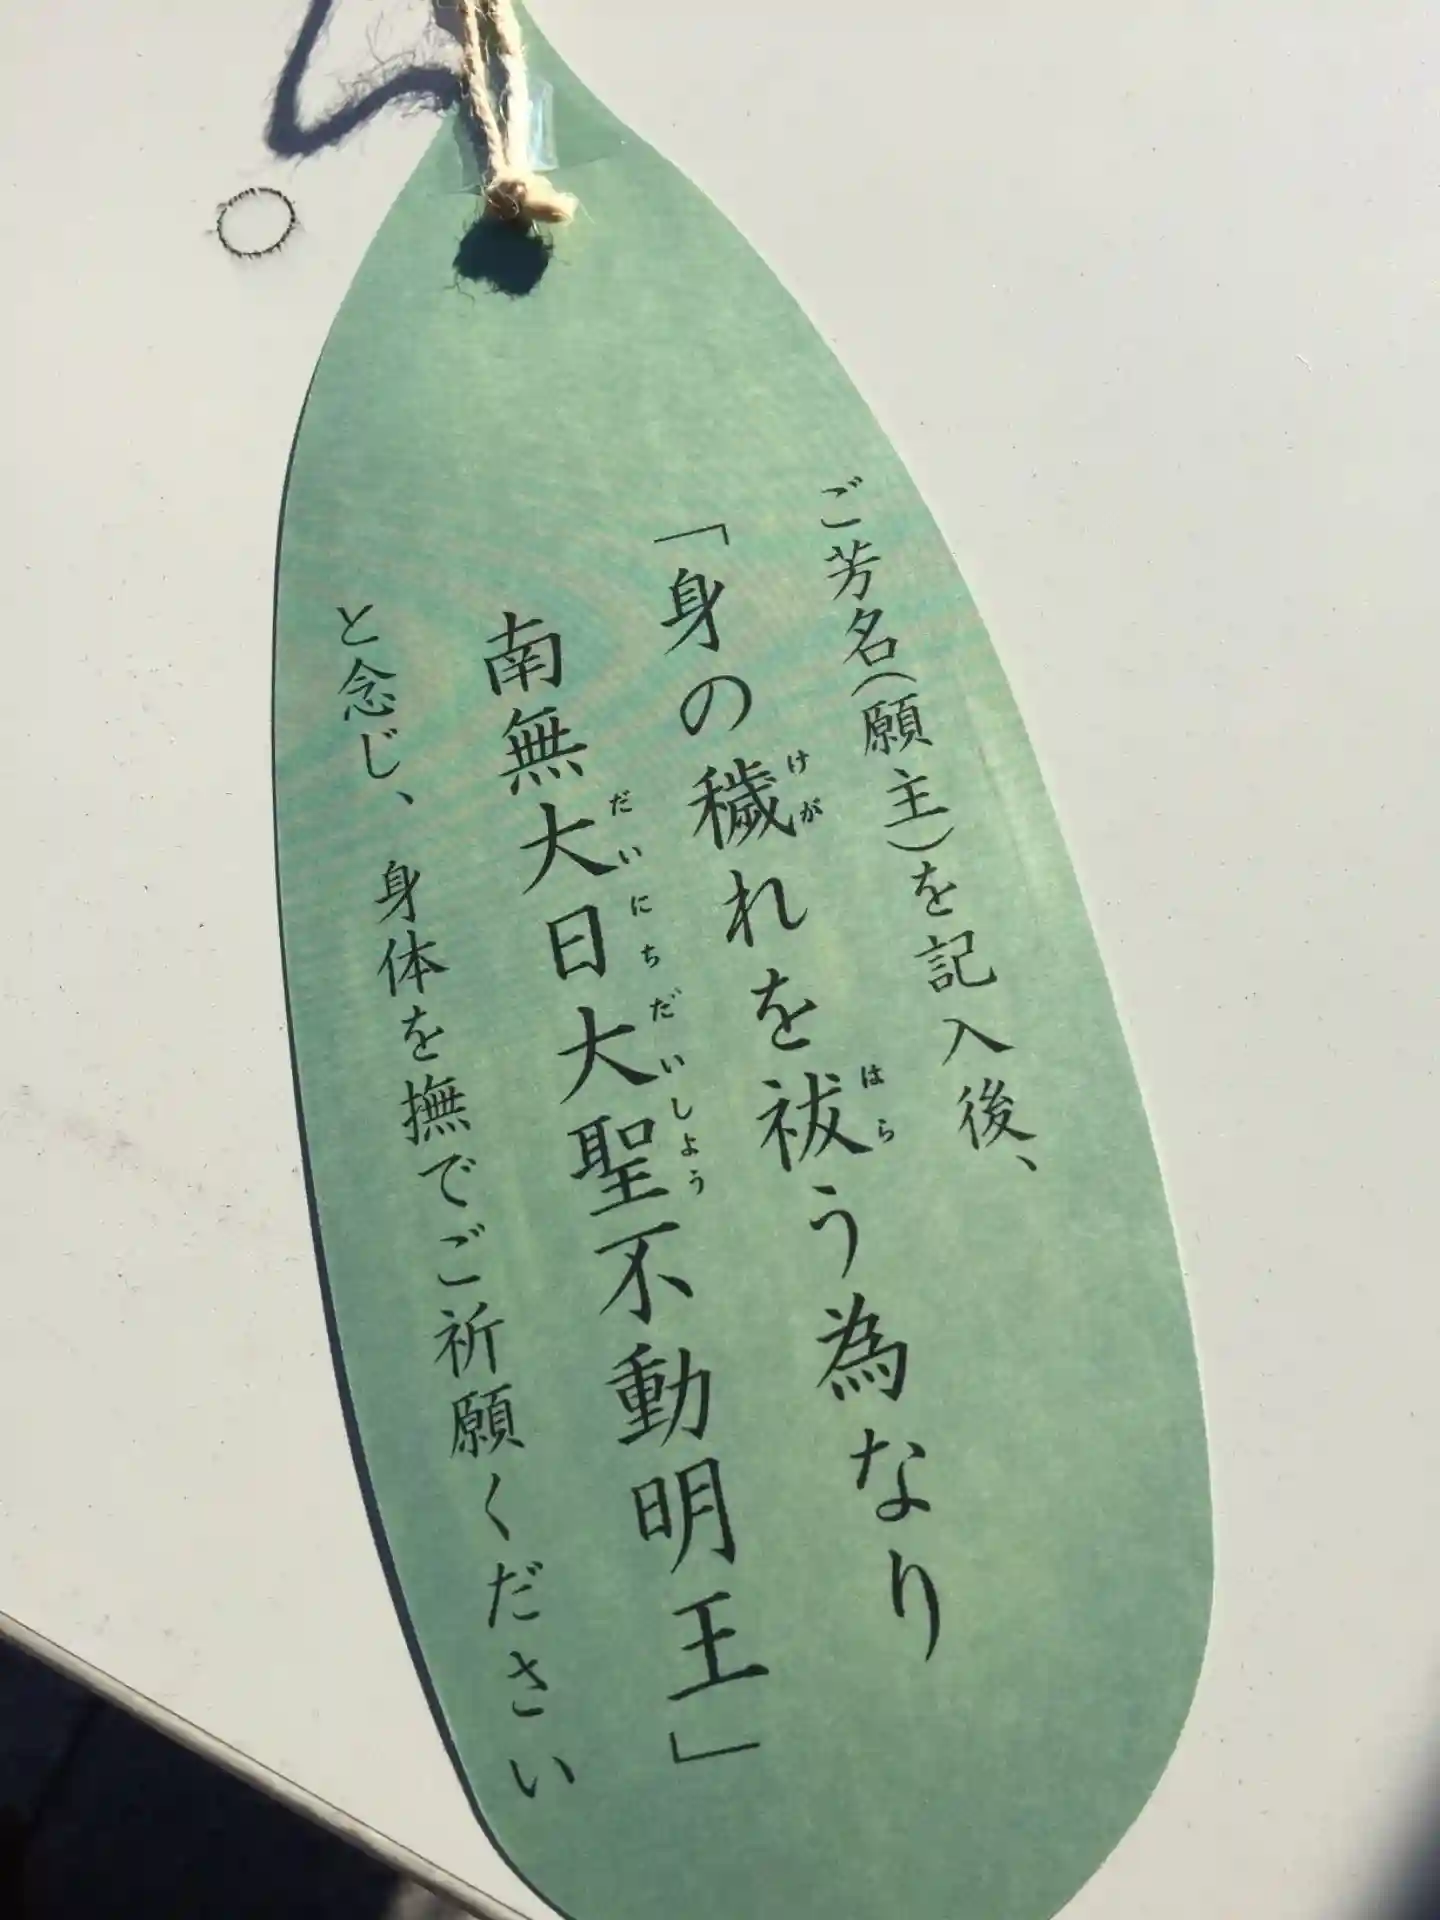 ご芳名(願主)を記入後、
「身の穢れを祓う為なり
けが
はら
南無大日大聖不動明王」
だいにちだいしょう
と念じ、身体を撫でご祈願ください